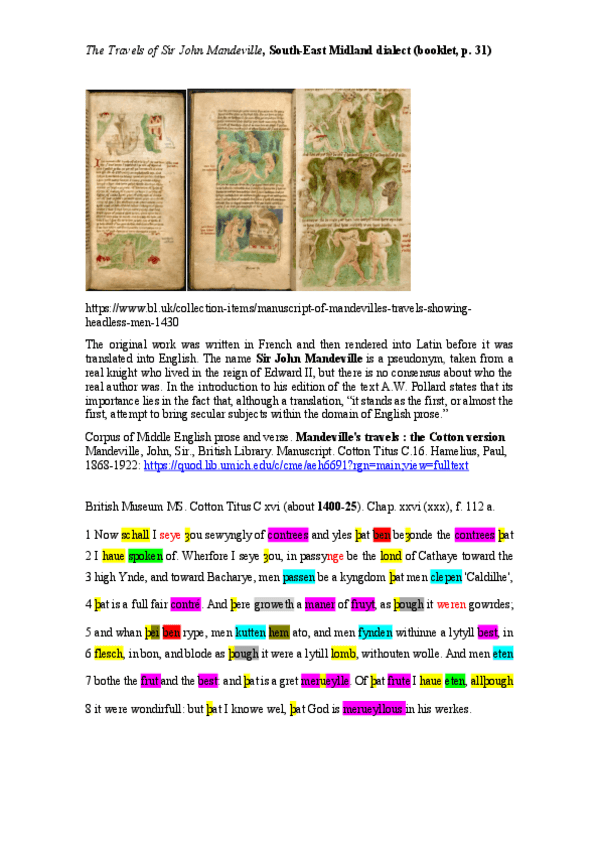 The Travels of Sir John Mandeville, South-East Midland dialect (booklet, p. 31)
https://www.bl.uk/collection-items/manuscript-of-mandevilles-travels-showing-
headless-men-1430
The original work was written in French and then rendered into Latin before it was
translated into English. The name Sir John Mandeville is a pseudonym, taken from a
real knight who lived in the reign of Edward II, but there is no consensus about who the
real author was. In the introduction to his edition of the text A.W. Pollard states that its
importance lies in the fact that, although a translation, “it stands as the first, or almost the
first, attempt to bring secular subjects within the domain of English prose.”
Corpus of Middle English prose and verse. Mandeville's travels : the Cotton version
Mandeville, John, Sir., British Library. Manuscript. Cotton Titus C.16. Hamelius, Paul,
1868-1922: https://quod.lib.umich.edu/c/cme/aeh6691?rgn=main;view=fulltext
British Museum MS. Cotton Titus C xvi (about 1400-25). Chap. xxvi (xxx), f. 112 a.
1 Now schall I seye ȝou sewyngly of contrees and yles þat ben beȝonde the contrees þat
2 I haue spoken of. Wherfore I seye ȝou, in passynge be the lond of Cathaye toward the
3 high Ynde, and toward Bacharye, men passen be a kyngdom þat men clepen 'Caldilhe',
4 þat is a full fair contre. And þere groweth a maner of fruyt, as þough it weren gowrdes;
5 and whan þei ben rype, men kutten hem ato, and men fynden withinne a lytyll best, in
6 flesch, in bon, and blode as þough it were a lytill lomb, withouten wolle. And men eten
7 bothe the frut and the best: and þat is a gret merueylle. Of þat frute I haue eten, allþough
8 it were wondirfull: but þat I knowe wel, þat God is merueyllous in his werkes.